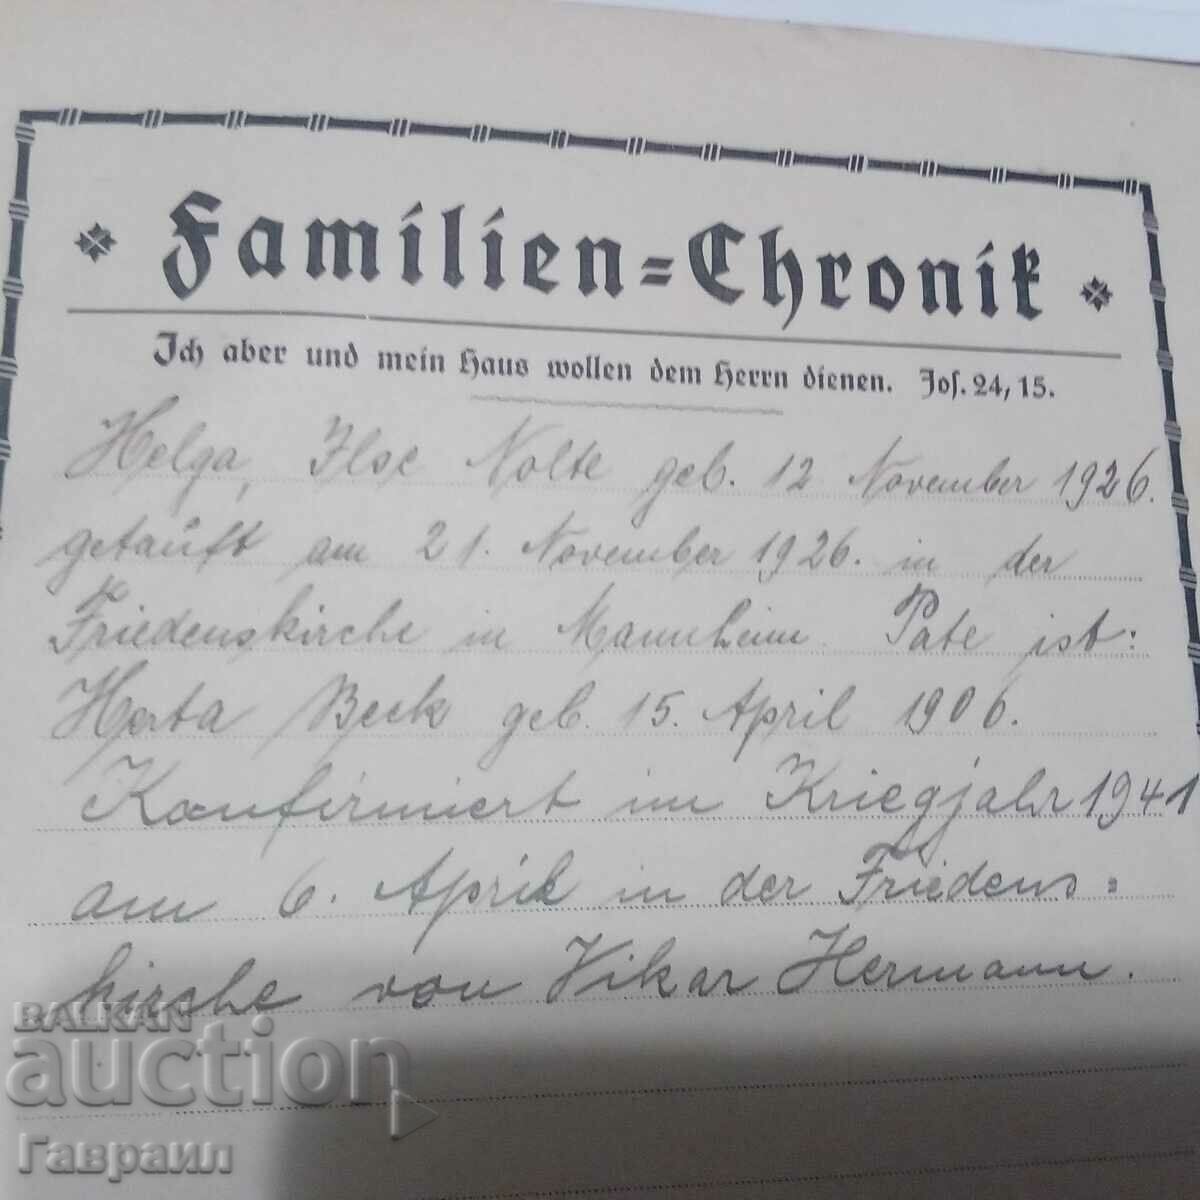 Familien=Chronik
Ich aber und mein Haus wollen dem Herrn dienen. Jos. 24, 15.
Helga, Ilse Nolte geb. 12 November 1926.
getauft am 21. November 1926. in der
Friedenskirche in Mannheim. Pate ist:
Herta Beck geb. 15. April 1906.
Konfirmiert im Kriegjahr 1941
am 6. April in der Friedens=
kirche von Vikar Hermann.
BALKAN
auction
Гавраил